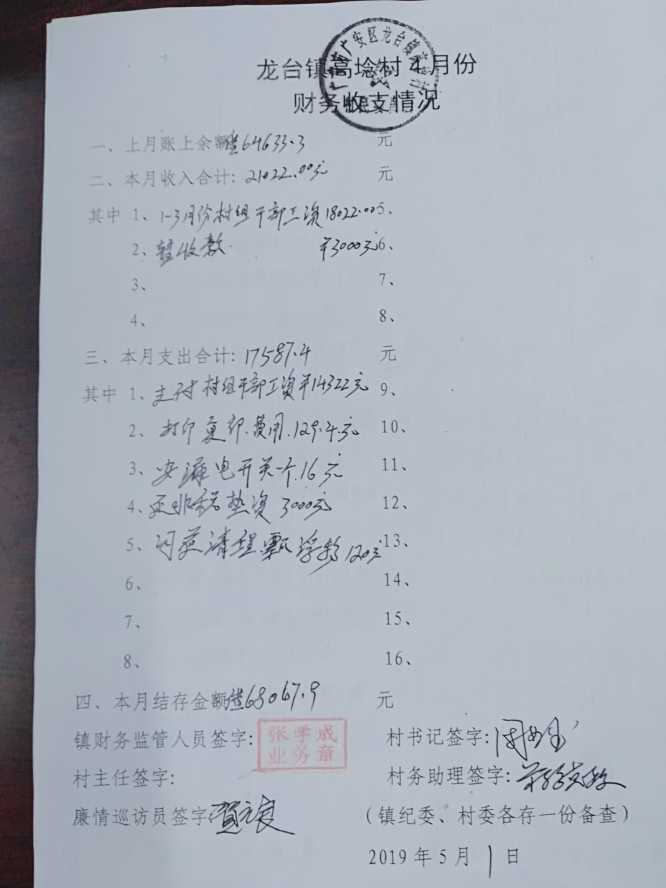 龙台镇高埝村4月份
财务收支情况
一、上月账上余额 64633.3 元
二、本月收入合计: 21022.00元 元
其中 1、1-3月份村组干部工资 18022.00 5、
2、暂收款 ¥3000元 6、
3、 7、
4、 8、
三、本月支出合计: 17587.4 元
其中 1、支付村组干部工资¥14322元 9、
2、打印复印费用.129.4元 10、
3、电开关一个.16元 11、
4、垫资 3000元 12、
5、清理漂浮物120元 13、
6、 14、
7、 15、
8、 16、
四、本月结存金额 68067.9 元
镇财务监管人员签字: 张学成业务章 村书记签字:
村主任签字: 村务助理签字:
廉情巡访员签字: (镇纪委、村委各存一份备查)
2019 年 5 月 1 日